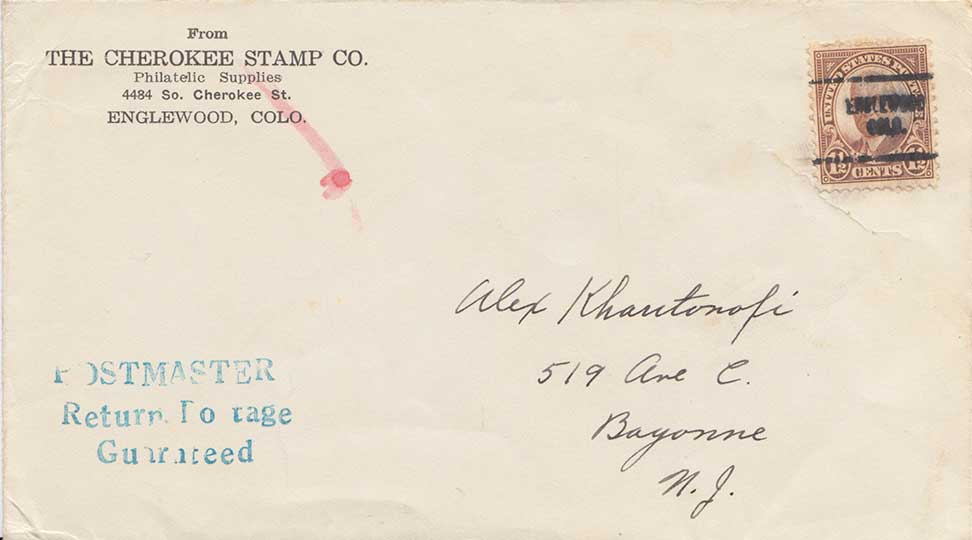 From
THE CHEROKEE STAMP CO.
Philatelic Supplies
4484 So. Cherokee St.
ENGLEWOOD, COLO.
UNITED STATES POSTAGE
ENGLEWOOD
COLO.
1½ CENTS 1½
Alex Kharitonofi
519 Ave C.
Bayonne
N. J.
POSTMASTER
Return Postage
Guaranteed